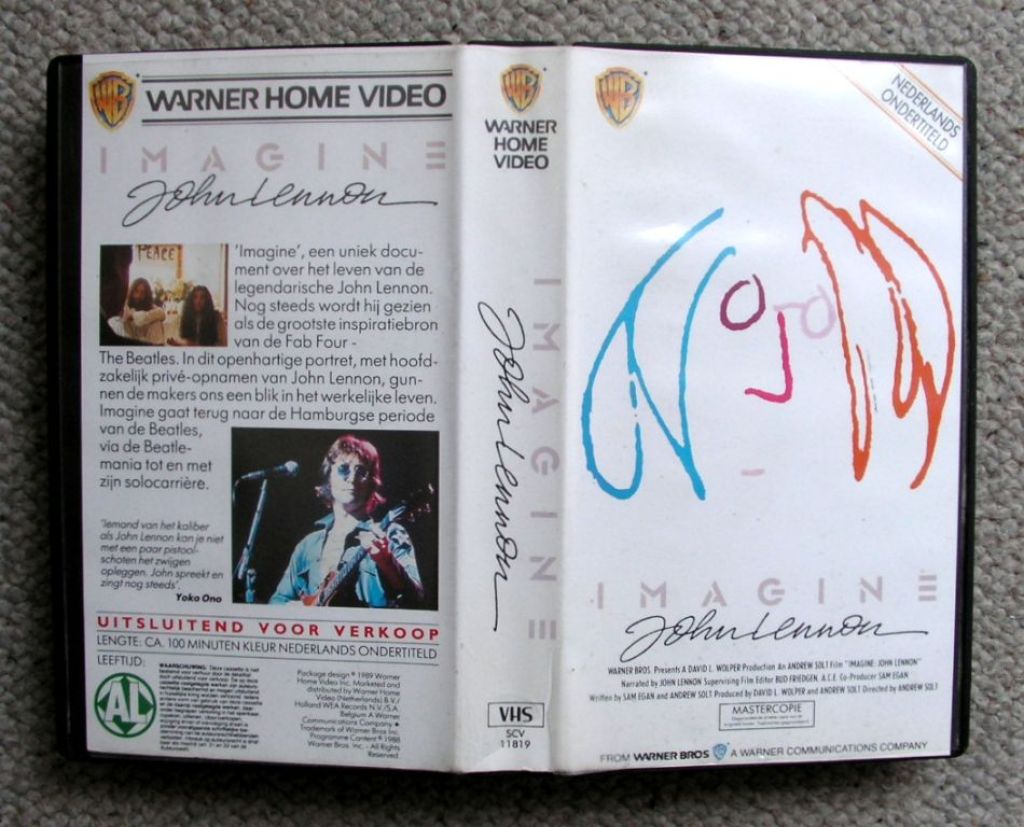 WB
WARNER HOME VIDEO
IMAGINE
John Lennon
PEACE
'Imagine', een uniek docu-
ment over het leven van de
legendarische John Lennon.
Nog steeds wordt hij gezien
als de grootste inspiratiebron
van de Fab Four -
The Beatles. In dit openhartige portret, met hoofd-
zakelijk privé-opnamen van John Lennon, gun-
nen de makers ons een blik in het werkelijke leven.
Imagine gaat terug naar de Hamburgse periode
van de Beatles,
via de Beatle-
mania tot en met
zijn solocarrière.
'Iemand van het kaliber
als John Lennon kan je niet
met een paar pistool-
schoten het zwijgen
opleggen. John spreekt en
zingt nog steeds'.
Yoko Ono
UITSLUITEND VOOR VERKOOP
LENGTE: CA. 100 MINUTEN KLEUR NEDERLANDS ONDERTITELD
LEEFTIJD:
AL
WAARSCHUWING: Deze cassette is niet
Package design © 1989 Warner
Home Video Inc. Marketed and
distributed by Warner Home
Video (Netherlands) B.V./
Holland WEA Records N.V./S.A.
Belgium A Warner
Communications Company
Trademark of Warner Bros Inc.
Programme Content © 1988
Warner Bros. Inc. - All Rights
Reserved.
WB
WARNER
HOME
VIDEO
IMAGINE
John Lennon
VHS
SCV
11819
WB
NEDERLANDS
ONDERTITELD
IMAGINE
John Lennon
WARNER BROS. Presents A DAVID L. WOLPER Production An ANDREW SOLT Film "IMAGINE: JOHN LENNON"
Narrated by JOHN LENNON Supervising Film Editor BUD FRIEDGEN, A.C.E. Co-Producer SAM EGAN
Written by SAM EGAN and ANDREW SOLT Produced by DAVID L. WOLPER and ANDREW SOLT Directed by ANDREW SOLT
MASTERCOPIE
FROM WARNER BROS A WARNER COMMUNICATIONS COMPANY